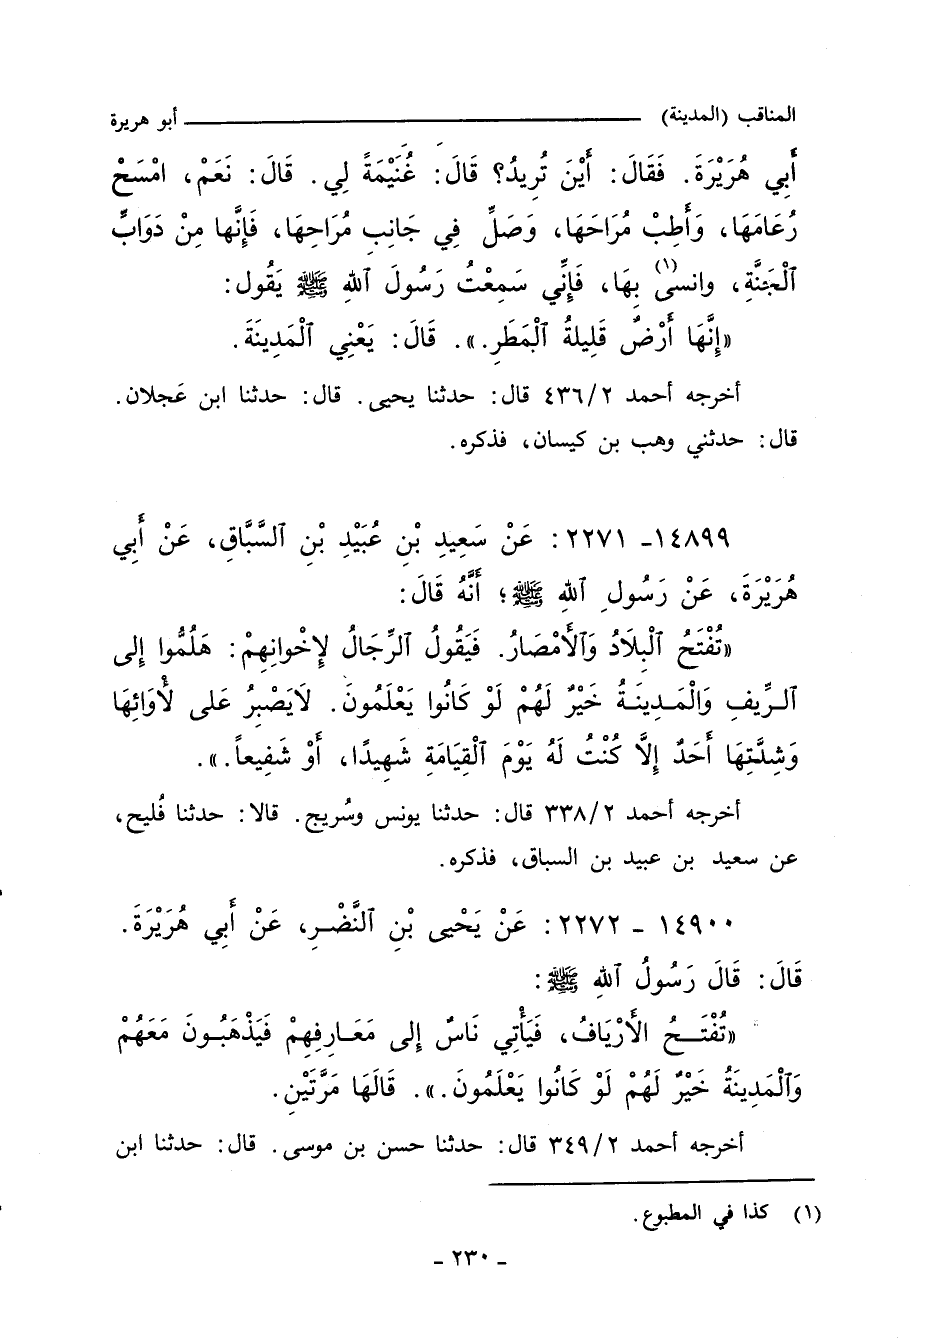 المناقب (المدينة) ـــــــــــــــــــــــــ أبو هريرة
أَبِي هُرَيْرَةَ. فَقَالَ: أَيْنَ تُرِيدُ؟ قَالَ: غُنَيْمَةً لِي. قَالَ: نَعَمْ، امْسَحْ
رُعَامَهَا، وَأَطِبْ مُرَاحَهَا، وَصَلِّ فِي جَانِبِ مُرَاحِهَا، فَإِنَّها مِنْ دَوَابِّ
ٱلْجَنَّةِ، وانسئ(١) بِهَا، فَإِنِّي سَمِعْتُ رَسُولَ ٱللهِ ﷺ يَقُول:
«إِنَّهَا أَرْضٌ قَلِيلةُ ٱلْمَطَرِ.». قَالَ: يَعْنِي ٱلْمَدِينَةَ.
أخرجه أحمد ٤٣٦/٢ قال: حدثنا يحيى. قال: حدثنا ابن عَجلان.
قال: حدثني وهب بن كيسان، فذكره.
١٤٨٩٩ـ ٢٢٧١: عَنْ سَعِيدِ بْنِ عُبَيْدِ بْنِ ٱلسَّبَّاقِ، عَنْ أَبِي
هُرَيْرَةَ، عَنْ رَسُولِ ٱللهِ ﷺ؛ أَنَّهُ قَالَ:
«تُفْتَحُ ٱلْبِلاَدُ وَٱلأَمْصَارُ. فَيَقُولُ ٱلرِّجَالُ لإِخْوانِهِمْ: هَلُمُّوا إِلى
ٱلرِّيفِ وَالْمَدِينَةُ خَيْرٌ لَهُمْ لَوْ كَانُوا يَعْلَمُونَ. لاَيَصْبِرُ عَلى لأْوَائِهَا
وَشِدَّتِهَا أَحَدٌ إِلاَّ كُنْتُ لَهُ يَوْمَ ٱلْقِيَامَةِ شَهِيدًا، أَوْ شَفِيعاً.».
أخرجه أحمد ٣٣٨/٢ قال: حدثنا يونس وسُريج. قالا: حدثنا فُليح،
عن سعيد بن عبيد بن السباق، فذكره.
١٤٩٠٠ ـ ٢٢٧٢: عَنْ يَحْيى بْنِ ٱلنَّضْرِ، عَنْ أَبِي هُرَيْرَةَ.
قَالَ: قَالَ رَسُولُ ٱللهِ ﷺ:
«تُفْتَحُ الأَرْيَافُ، فَيَأْتِي نَاسٌ إِلى مَعَارِفِهِمْ فَيَذْهَبُونَ مَعَهُمْ
وَٱلْمَدِينَةُ خَيْرٌ لَهُمْ لَوْ كَانُوا يَعْلَمُونَ.». قَالَهَا مَرَّتَيْنِ.
أخرجه أحمد ٣٤٩/٢ قال: حدثنا حسن بن موسى. قال: حدثنا ابن
(١) كذا في المطبوع.
ـ ٢٣٠ ـ